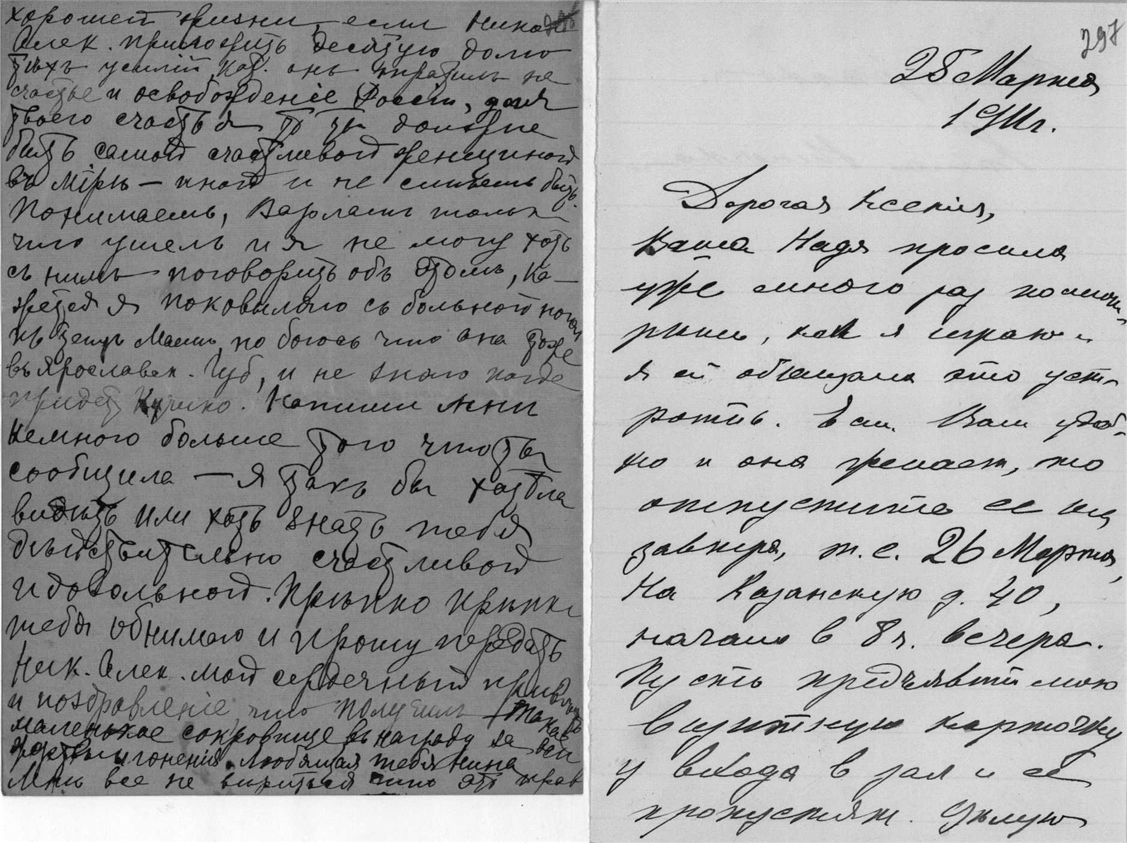 хорошей жизни, если Никол.
Алек. приложитъ десятую долю
тѣхъ усилій, кот. онъ тратилъ на
счастье и освобожденіе Россіи, для
твоего счастья то ты должна
быть самой счастливой женщиной
въ мірѣ — иной и не смѣешь быть.
Понимаешь, Варламъ только
что ушелъ и я не могу хоть
съ нимъ поговорить объ этомъ, ка-
жется я поковыляю съ больной ногой
къ тетѣ Машѣ, но боюсь что она тоже
въ Ярославск. Губ, и не знаю когда
придетъ. Напиши мнѣ
немного больше того что ты
сообщила — я такъ бы хотѣла
видѣть или хоть знать тебя
дѣйствительно счастливой
и довольной. Крѣпко крѣпко
тебя обнимаю и прошу передать
Ник. Алек. мой сердечный привѣтъ
и поздравленіе что получилъ такое
маленькое сокровище въ награду за всѣ
гоненія. Любящая тебя Нина
Мнѣ все не вѣрится что это прав
297
25 Марта
1911г.
Дорогая Ксения,
Ваша Надя просила
уже много раз посмот-
реть, как я играю и
я ей обещала это уст-
роить. Если Вам удоб-
но и она желает, то
отпустите ее на
завтра, т.е. 26 Марта,
На Казанскую д. 40,
начало в 8ч. вечера.
Пусть предъявит мою
визитную карточку
у входа в зал и ее
пропустят. Целую